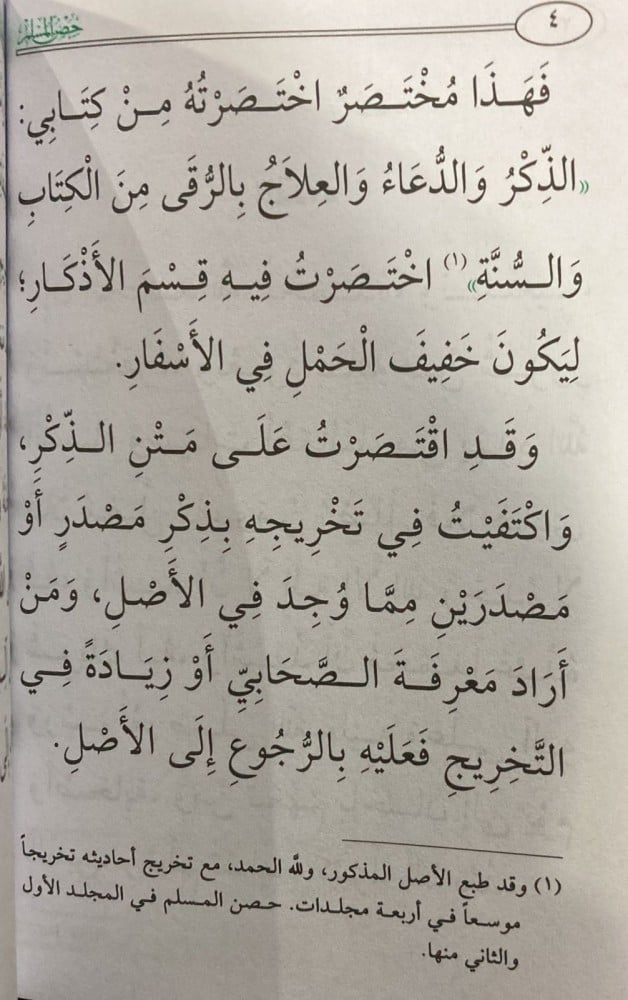 حِصْنُ المُسْلِمِ
٤
فَهَذَا مُخْتَصَرٌ اخْتَصَرْتُهُ مِنْ كِتَابِي:
«الذِّكْرُ وَالدُّعَاءُ وَالعِلاَجُ بِالرُّقَى مِنَ الْكِتَابِ
وَالسُّنَّةِ»(١) اخْتَصَرْتُ فِيهِ قِسْمَ الأَذْكَارِ؛
لِيَكُونَ خَفِيفَ الْحَمْلِ فِي الأَسْفَارِ.
وَقَدِ اقْتَصَرْتُ عَلَى مَتْنِ الذِّكْرِ،
وَاكْتَفَيْتُ فِي تَخْرِيجِهِ بِذِكْرِ مَصْدَرٍ أَوْ
مَصْدَرَيْنِ مِمَّا وُجِدَ فِي الأَصْلِ، وَمَنْ
أَرَادَ مَعْرِفَةَ الصَّحَابِيِّ أَوْ زِيَادَةً فِي
التَّخْرِيجِ فَعَلَيْهِ بِالرُّجُوعِ إِلَى الأَصْلِ.
(١) وقد طبع الأصل المذكور، ولله الحمد، مع تخريج أحاديثه تخريجاً
موسعاً في أربعة مجلدات. حصن المسلم في المجلد الأول
والثاني منها.